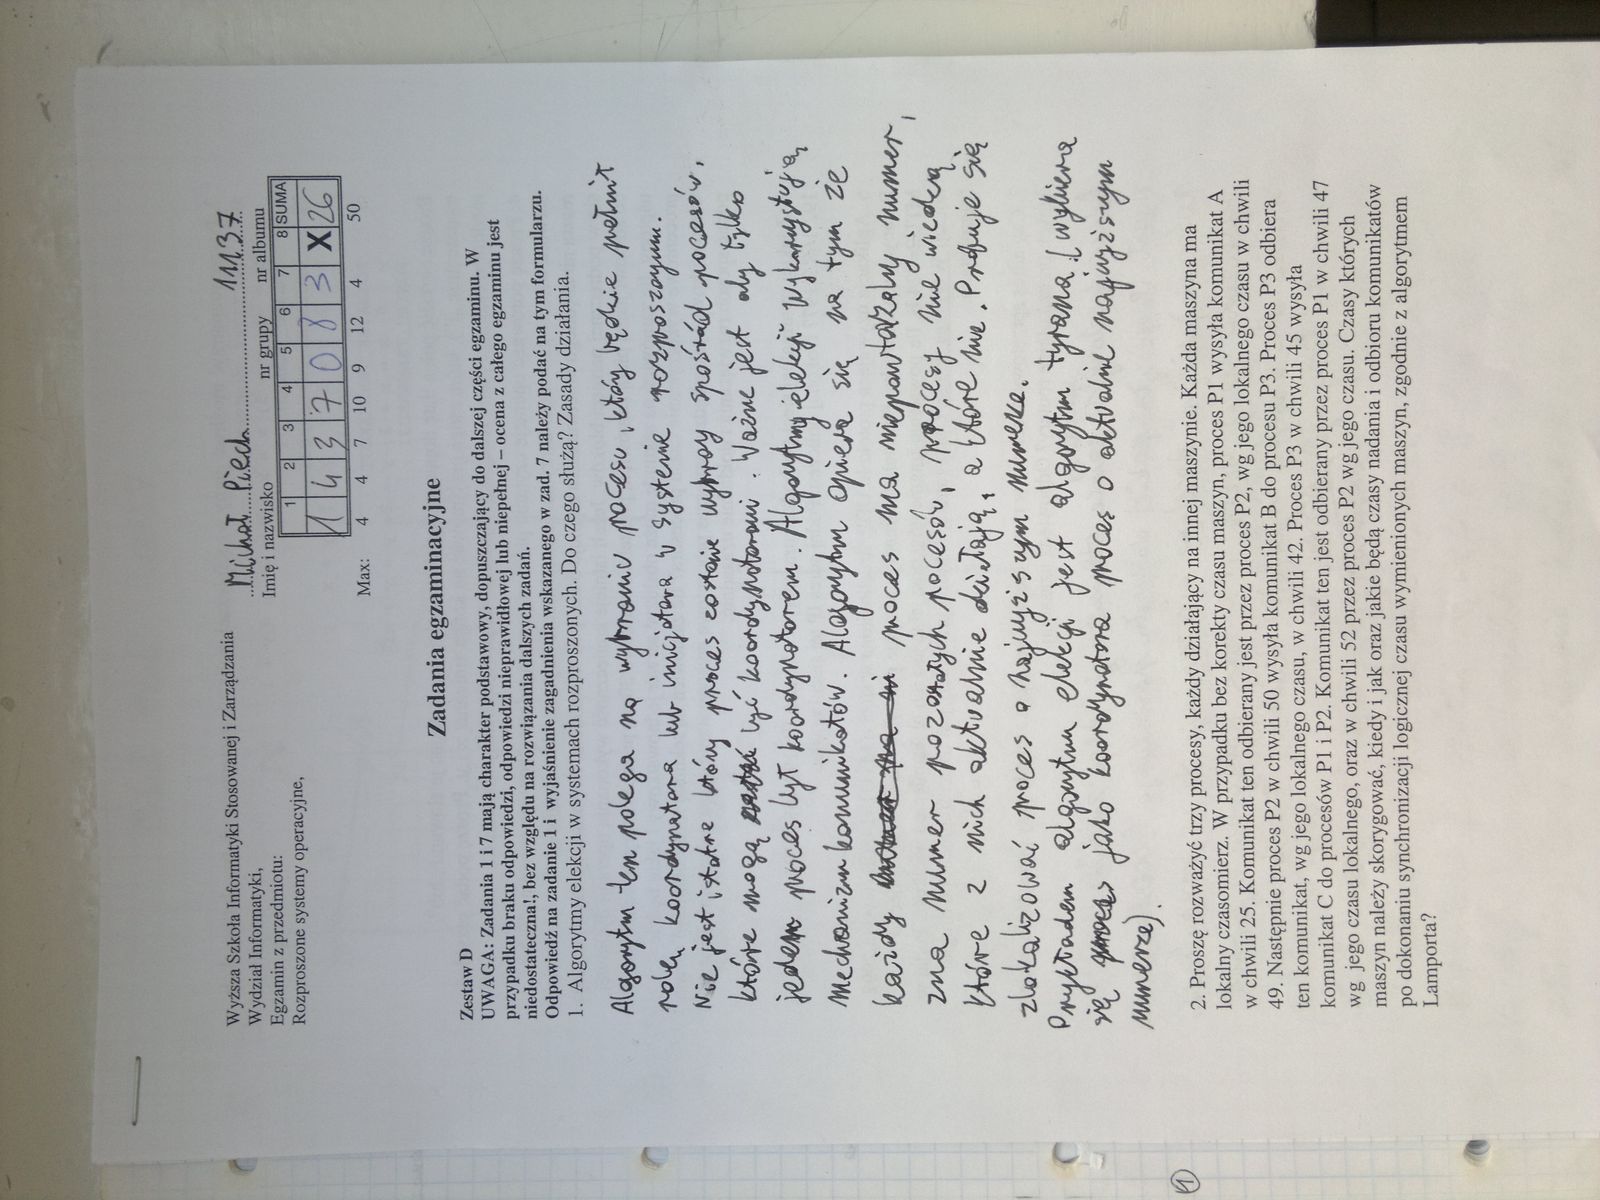 Wyższa Szkoła Informatyki Stosowanej i Zarządzania
Wydział Informatyki,
Egzamin z przedmiotu:
Rozproszone systemy operacyjne,
Michał Piech 11137
Imię i nazwisko nr grupy nr albumu
1 2 3 4 5 6 7 8 SUMA
1 4 3 7 0 8 3 X 26
Max: 4 4 7 10 9 12 4 50
Zadania egzaminacyjne
Zestaw D
UWAGA: Zadania 1 i 7 mają charakter podstawowy, dopuszczający do dalszej części egzaminu. W
przypadku braku odpowiedzi, odpowiedzi nieprawidłowej lub niepełnej – ocena z całego egzaminu jest
niedostateczna!, bez względu na rozwiązania dalszych zadań.
Odpowiedź na zadanie 1 i wyjaśnienie zagadnienia wskazanego w zad. 7 należy podać na tym formularzu.
1. Algorytmy elekcji w systemach rozproszonych. Do czego służą? Zasady działania.
Algorytm ten polega na wybraniu procesu, który będzie pełnił
rolę koordynatora lub inicjatora w systemie rozproszonym.
Nie jest istotne który proces zostanie wybrany spośród procesów,
które mogą być koordynatorami. Ważne jest aby tylko
jeden proces był koordynatorem. Algorytmy elekcji wykorzystują
mechanizm komunikatów. Algorytm opiera się na tym że
każdy proces ma niepowtarzalny numer,
zna numer pozostałych procesów, procesy nie wiedzą
które z nich aktualnie działają, a które nie. Próbuje się
zlokalizować proces o najwyższym numerze.
Przykładem algorytmu elekcji jest algorytm tyrana (wybiera
się jako koordynatora proces o aktualnie najwyższym
numerze).
1
2. Proszę rozważyć trzy procesy, każdy działający na innej maszynie. Każda maszyna ma
lokalny czasomierz. W przypadku bez korekty czasu maszyn, proces P1 wysyła komunikat A
w chwili 25. Komunikat ten odbierany jest przez proces P2, wg jego lokalnego czasu w chwili
49. Następnie proces P2 w chwili 50 wysyła komunikat B do procesu P3. Proces P3 odbiera
ten komunikat, wg jego lokalnego czasu, w chwili 42. Proces P3 w chwili 45 wysyła
komunikat C do procesów P1 i P2. Komunikat ten jest odbierany przez proces P1 w chwili 47
wg jego czasu lokalnego, oraz w chwili 52 przez proces P2 wg jego czasu. Czasy których
maszyn należy skorygować, kiedy i jak oraz jakie będą czasy nadania i odbioru komunikatów
po dokonaniu synchronizacji logicznej czasu wymienionych maszyn, zgodnie z algorytmem
Lamporta?